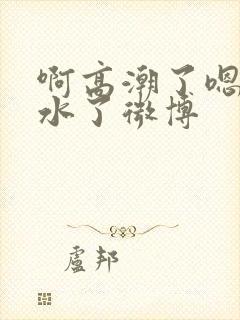 啊高潮了嗯
水了微博
盧邦